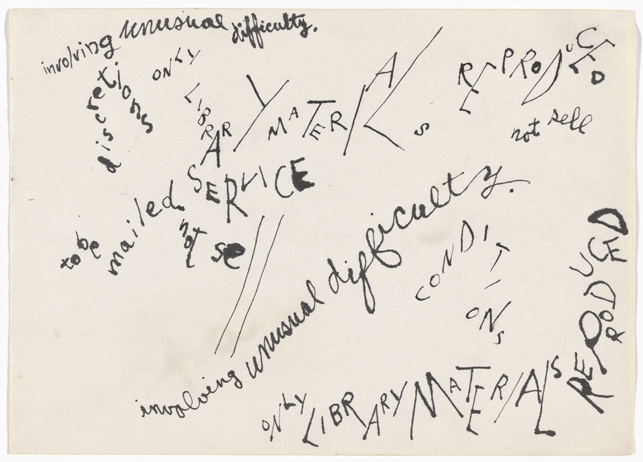 involving unusual difficulty.
discretions
ONLY
LIBRARY
MATERIALS
REPRODUCED
not sell
SERVICE
to be mailed.
not se
involving unusual difficulty.
CONDITIONS
REPRODUCED
ONLY LIBRARY MATERIALS